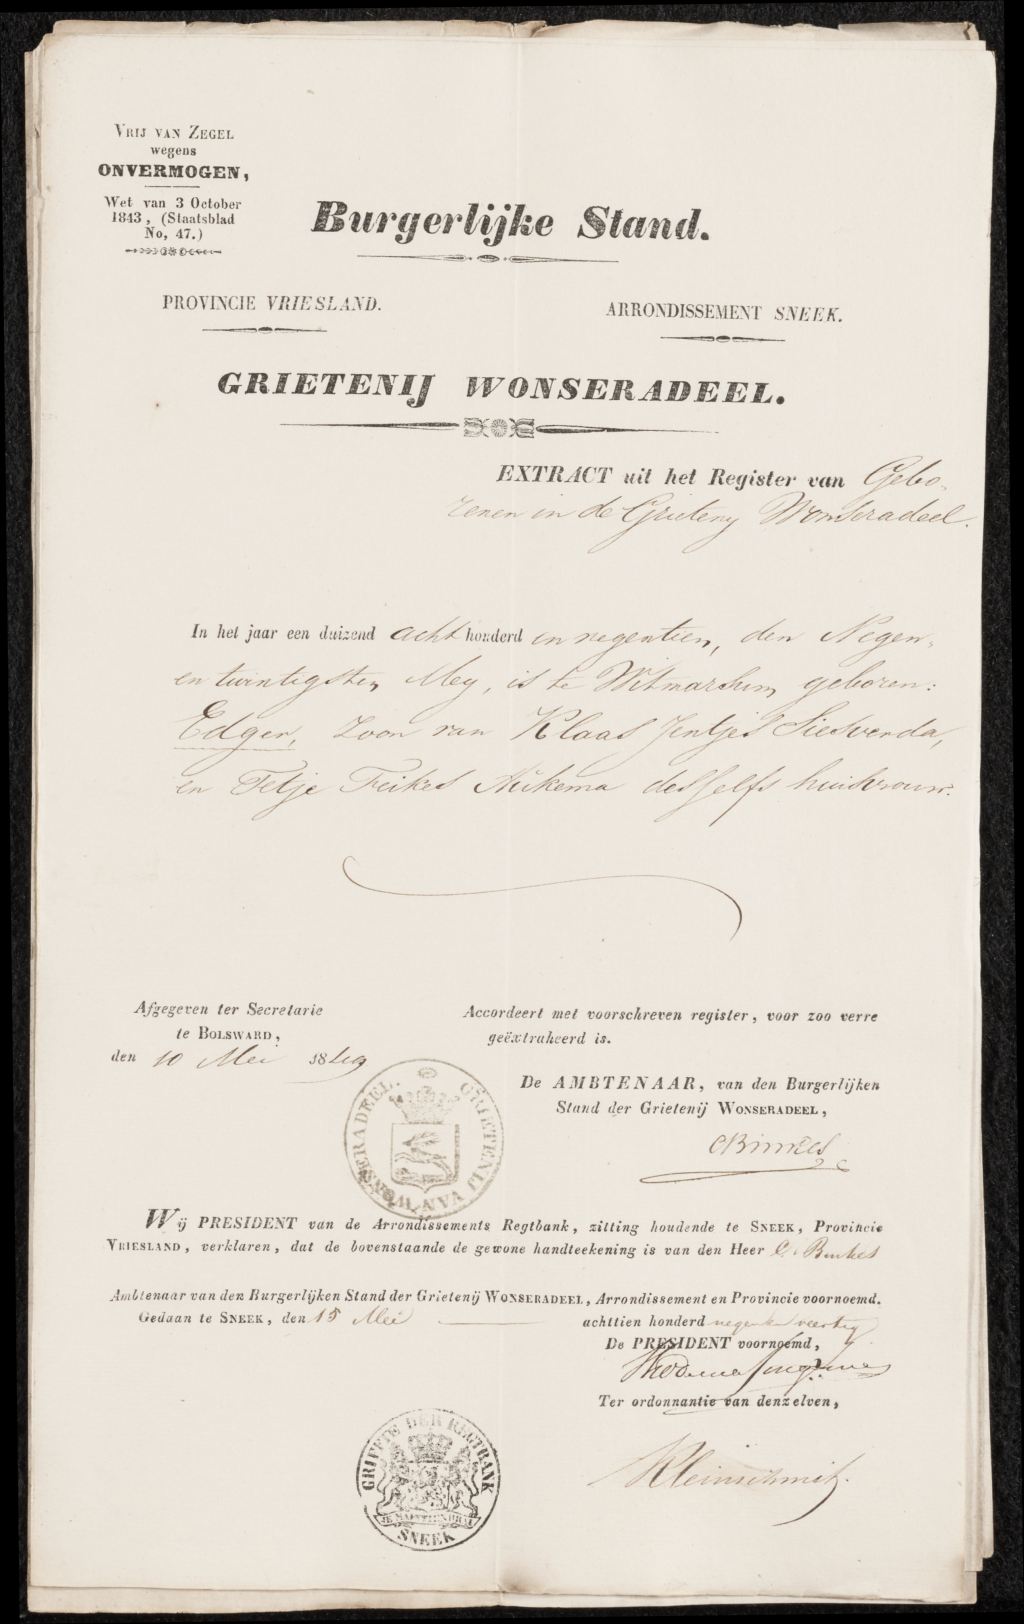 VRIJ VAN ZEGEL
wegens
ONVERMOGEN,
Wet van 3 October
1843, (Staatsblad
No, 47.)
Burgerlijke Stand.
PROVINCIE VRIESLAND.
ARRONDISSEMENT SNEEK.
GRIETENIJ WONSERADEEL.
EXTRACT uit het Register van Gebo-
renen in de Grieteny Wonseradeel.
In het jaar een duizend acht honderd en negentien, den Negen-
en twintigsten Mey, is te Witmarsum geboren:
Edger, zoon van Klaas Jentjes Siesvenda,
en Fetje Feikes Aukema desselfs huisvrouw.
Afgegeven ter Secretarie
te BOLSWARD,
den 10 Mei 1849
Accordeert met voorschreven register, voor zoo verre
geëxtraheerd is.
De AMBTENAAR, van den Burgerlijken
Stand der Grietenij WONSERADEEL,
GRIETENIJ VAN WONSERADEEL.
Wij PRESIDENT van de Arrondissements Regtbank, zitting houdende te SNEEK, Provincie
VRIESLAND, verklaren, dat de bovenstaande de gewone handteekening is van den Heer C.
Ambtenaar van den Burgerlijken Stand der Grietenij WONSERADEEL, Arrondissement en Provincie voornoemd.
Gedaan te SNEEK, den 15 Mei achttien honderd negen en veertig
De PRESIDENT voornoemd,
Ter ordonnantie van denzelven,
Kleinschmit.
GRIFFIE DER REGTBANK
JE MAINTIENDRAI
SNEEK